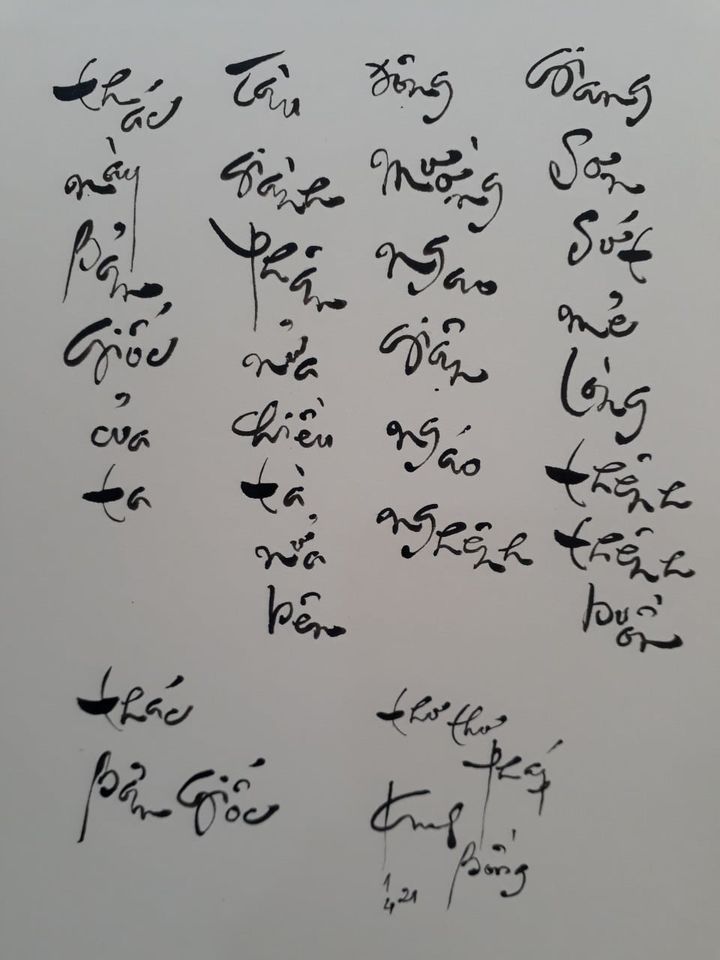 thác này Bản Giốc của ta
Tàu Giành phân nửa chiều tà nửa bên
mường ngao giận ngáo nghênh
Giang Sơn Sứt mẻ lòng thênh thênh buồn
thác
Bản Giốc
thơ thơ
pháp
Bổng
1
4 21